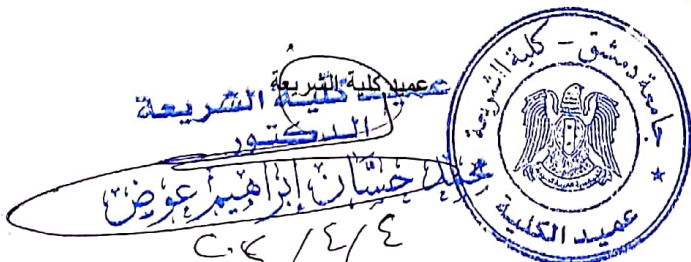 عميد كلية الشريعة
عميد كلية الشريعة
الدكتور
محمد حسان إبراهيم عوض
جامعة دمشق - كلية الشريعة
عميد الكلية